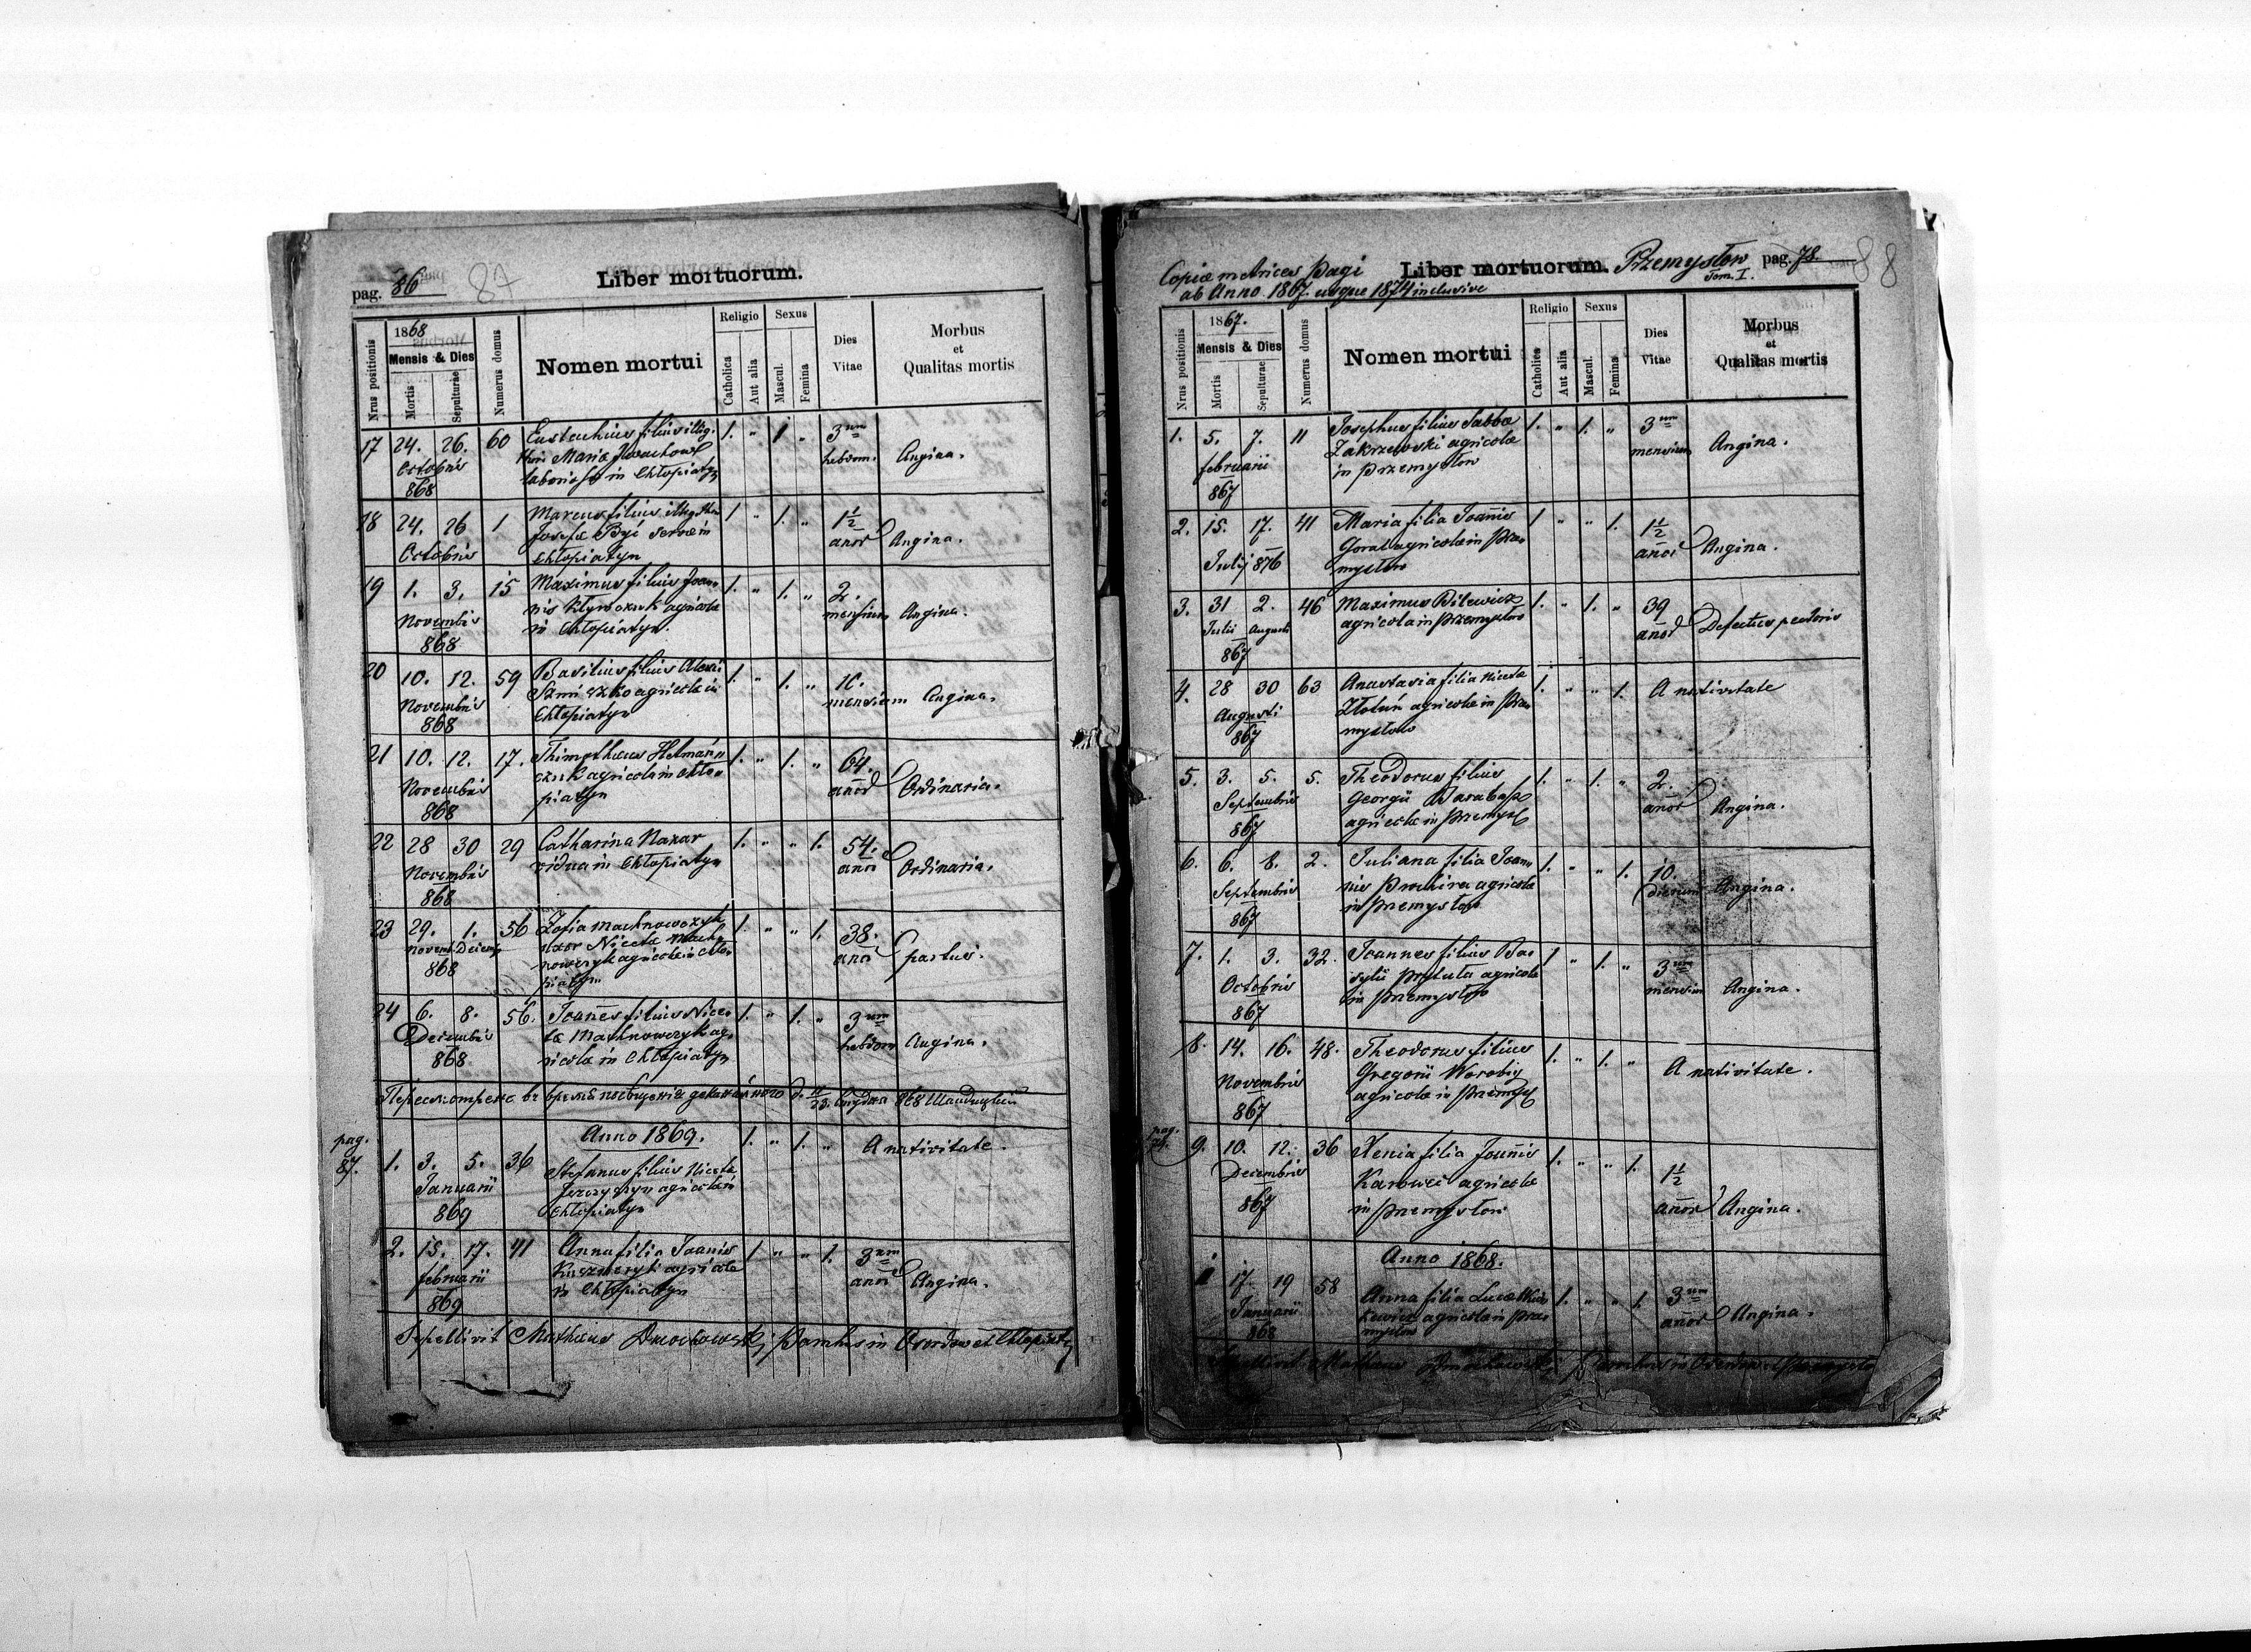 pag. 86 87 Liber mortuorum.
Nrus positionis
1868
Mensis & Dies
Mortis
Sepulturae
Numerus domus
Nomen mortui
Religio
Catholica
Aut alia
Sexus
Mascul.
Femina
Dies
Vitae
Morbus
et
Qualitas mortis
17 24. 26. Octobris 868 60 Eustachius filius illig. 1. " 1 " 3um hebdom. Angina.
thori Maria
laboriosa in Chłopiatyn
18 24. 26 Octobris 1 Marcus filius illig. thori 1 " 1. " 1½ anor Angina.
Josefa servae in
Chłopiatyn
19 1. 3. Novembris 868 15 Maximus filius Joan= 1. " 1. " 2. mensium Angina.
nis agricolae
in Chłopiatyn.
20 10. 12. Novembris 868 59 Basilius filius Alexii 1. " 1. " mensium Angina.
agricolae in
Chłopiatyn
21 10. 12. Novembris 868 17. Thimotheus Hetmań= 1. " 1. " 64. anor Ordinaria.
czuk agricola in Chło=
piatyn
22 28 30 Novembris 868 29 Catharina Nazar 1. " " 1. 54. anor Ordinaria.
vidua in Chłopiatyn
23 29. 1. Novemb. Decemb. 868 56 Zofia Machnowczyk 1. " " 1. 38. anor partus.
uxor Nicetae Mach=
nowczyk agricolae in Chło=
piatyn
24 6. 8. Decembris 868 56. Joañes filius Nice= 1. " 1. " 3um hebdom Angina.
tae Machnowczyk ag=
ricolae in Chłopiatyn
Anno 1869.
pag. 87.
1. 3. 5. Januarii 869 36 Stefanus filius Nicetae 1. " 1. " A nativitate.
agricolae in
Chłopiatyn
2. 15. 17. februarii 869 41 Anna filia Joanis 1 " " 1. 3um anor Angina.
agricolae
in Chłopiatyn
Sepellivit Mathaeus in et Chłopiatyn
Copiae metrices pagi Liber mortuorum. Przemysłow pag. 78. 88
ab Anno 1867. usque 1874 inclusive Tom. I.
Nrus positionis
1867.
Mensis & Dies
Mortis
Sepulturae
Numerus domus
Nomen mortui
Religio
Catholica
Aut alia
Sexus
Mascul.
Femina
Dies
Vitae
Morbus
et
Qualitas mortis
1. 5. 7. februarii 867 11 Josephus filius Sabbae 1. " 1. " 3um mensium Angina.
Zakrzewski agricolae
in Przemysłow
2. 15. 17. Julij 876 41 Maria filia Joañis 1 " " 1. 1½ anor Angina.
Goral agricolae in Prze=
mysłow
3. 31 2. Julii Augusti 867 46 Maximus Bilewicz 1. " 1. " 39 anor Defectus pectoris
agricola in Przemysłow
4. 28 30 Augusti 867 63 Anastasia filia Nicetae 1. " " 1. A nativitate
agricolae in Prze=
mysłow
5. 3. 5. Septembris 867 5. Theodorus filius 1. " 1. " 2. anor Angina.
Georgii Barabasz
agricolae in Przemysł
6. 6. 8. Septembris 867 2. Juliana filia Joan= 1. " " 1. 10. dierum Angina.
nis agricolae
in Przemysłow
7. 1. 3. Octobris 867 32. Joannes filius Ba= 1 " 1. " 3um mensium Angina.
sylii Prytuła agricolae
in Przemysłow
8. 14. 16. Novembris 867 48. Theodorus filius 1. " 1. " A nativitate.
Gregorii Worobij
agricolae in Przemysł
pag.
9. 10. 12. Decembris 867 36 Xenia filia Joañis 1. " " 1. 1½ anor Angina.
agricolae
in Przemysłow
Anno 1868.
1 17. 19 Januarii 868 58 Anna filia Lucae 1. " " 1. 3um anor Angina.
agricolae in Prze=
mysłow
Sepellivit Mathaeus in et Przemysłow